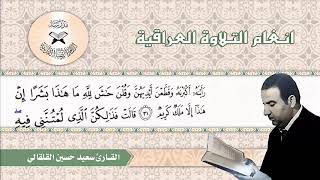 انغام التلاوة العراقية
رَأَيْنَهُۥٓ أَكْبَرْنَهُۥ وَقَطَّعْنَ أَيْدِيَهُنَّ وَقُلْنَ حَٰشَ لِلَّهِ مَا هَٰذَا بَشَرًا إِنْ
هَٰذَآ إِلَّا مَلَكٌ كَرِيمٌ ﴿٣١﴾ قَالَتْ فَذَٰلِكُنَّ ٱلَّذِى لُمْتُنَّنِى فِيهِ ۖ
القارئ سعيد حسين القلقالي